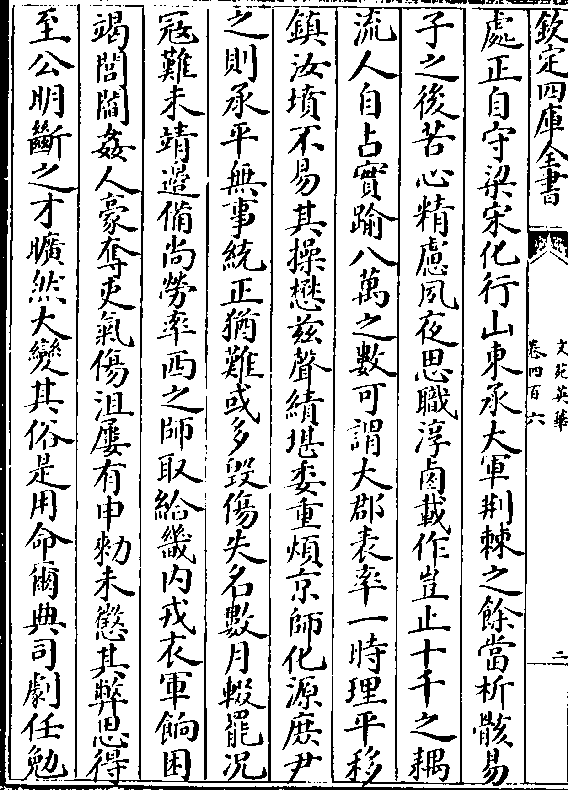 欽定四庫全書
文苑英華
卷四百六
二
處正自守梁宋化行山東承大軍荆棘之餘當析骸易
子之後苦心精慮夙夜思職淳鹵載作豈止十千之耦
流人自占實踰八萬之數可謂大郡表率一時理平移
鎮汝墳不易其操懋兹聲績堪委重煩京師化源庶尹
之則承平無事統正猶難或多毀傷失名數月輟罷况
冦難未靖邉備尚勞率西之師取給畿内戎衣軍餉困
竭閭閻姦人豪奪吏氣傷沮屢有申勑未懲其弊思得
至公明斷之才曠然大變其俗是用命爾典司劇任勉